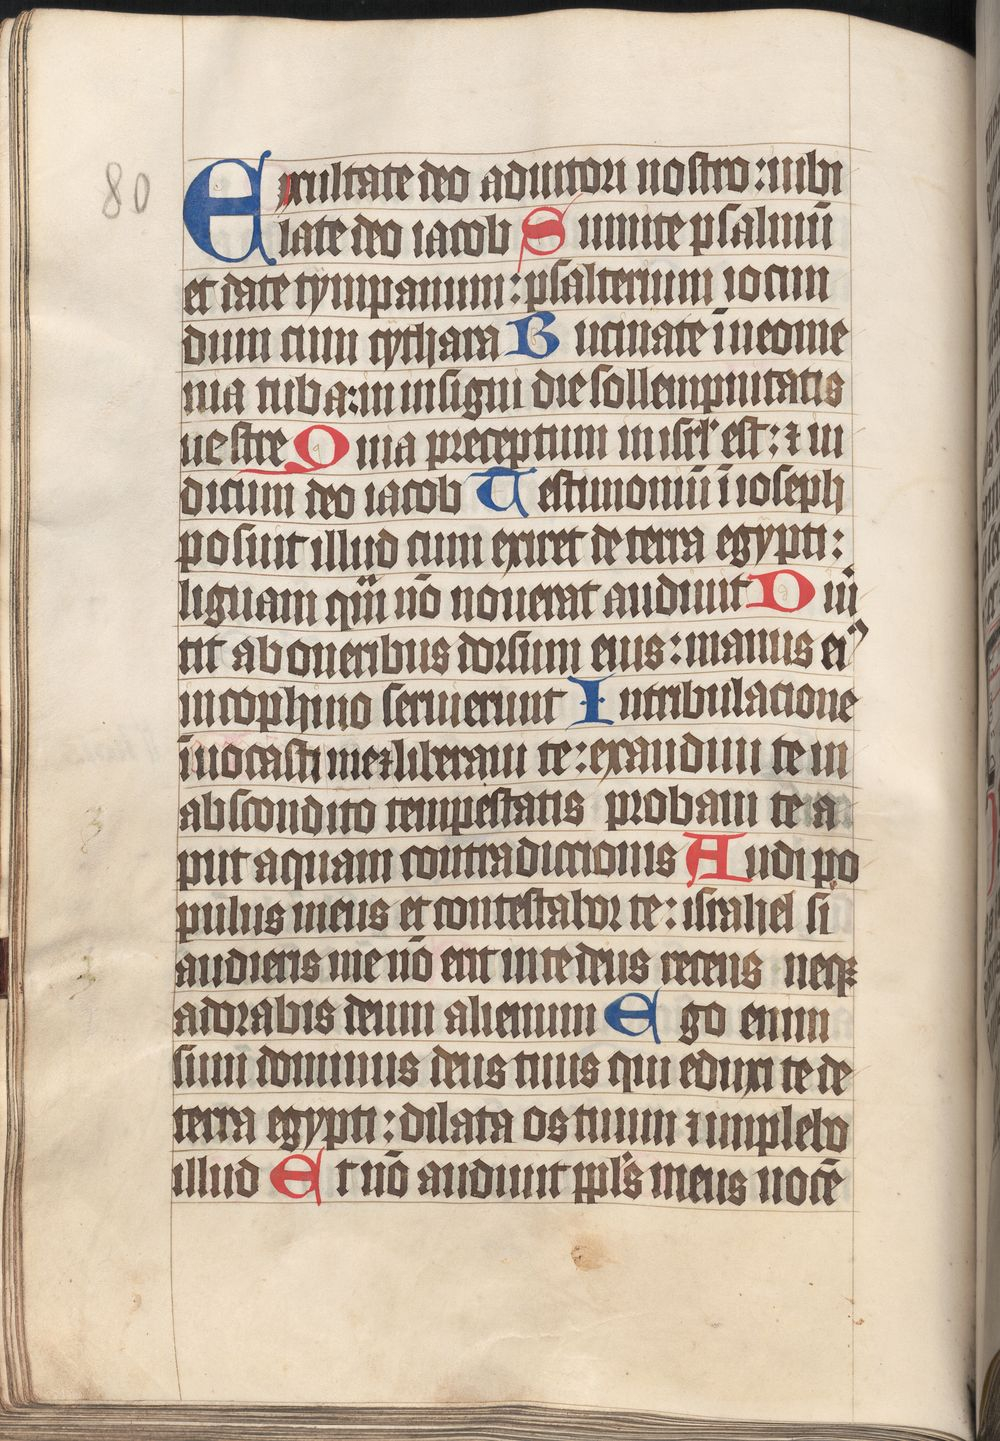 80
Exultate deo adiutori nostro: iubi
late deo iacob Sumite psalmū
et date tympanum: psalterium iocun
dum cum cythara Bucinate ī neome
nia tuba: in insigni die sollempnitatis
uestre Quia preceptum in isrl' est: ⁊ iu
dicium deo iacob Testimoniū ī ioseph
posuit illud cum exiret de terra egypti:
liguam quā nō nouerat audiuit Diu̅
tit ab oneribus dorsum eius: manus eiꝰ
in cophino seruierunt In tribulacione
īuocasti me ⁊ liberaui te: exaudiui te in
abscondito tempestatis probaui te a
put aquam contradictionis Audi po
pulus meus et contestabor te: israhel si
audieris me nō erit in te deus recens neqꝫ
adorabis deum alienum Ego enim
sum dominus deus tuus qui eduxi te de
terra egypti: dilata os tuum ⁊ implebo
illud Et nō audiuit ppl's meus uocē